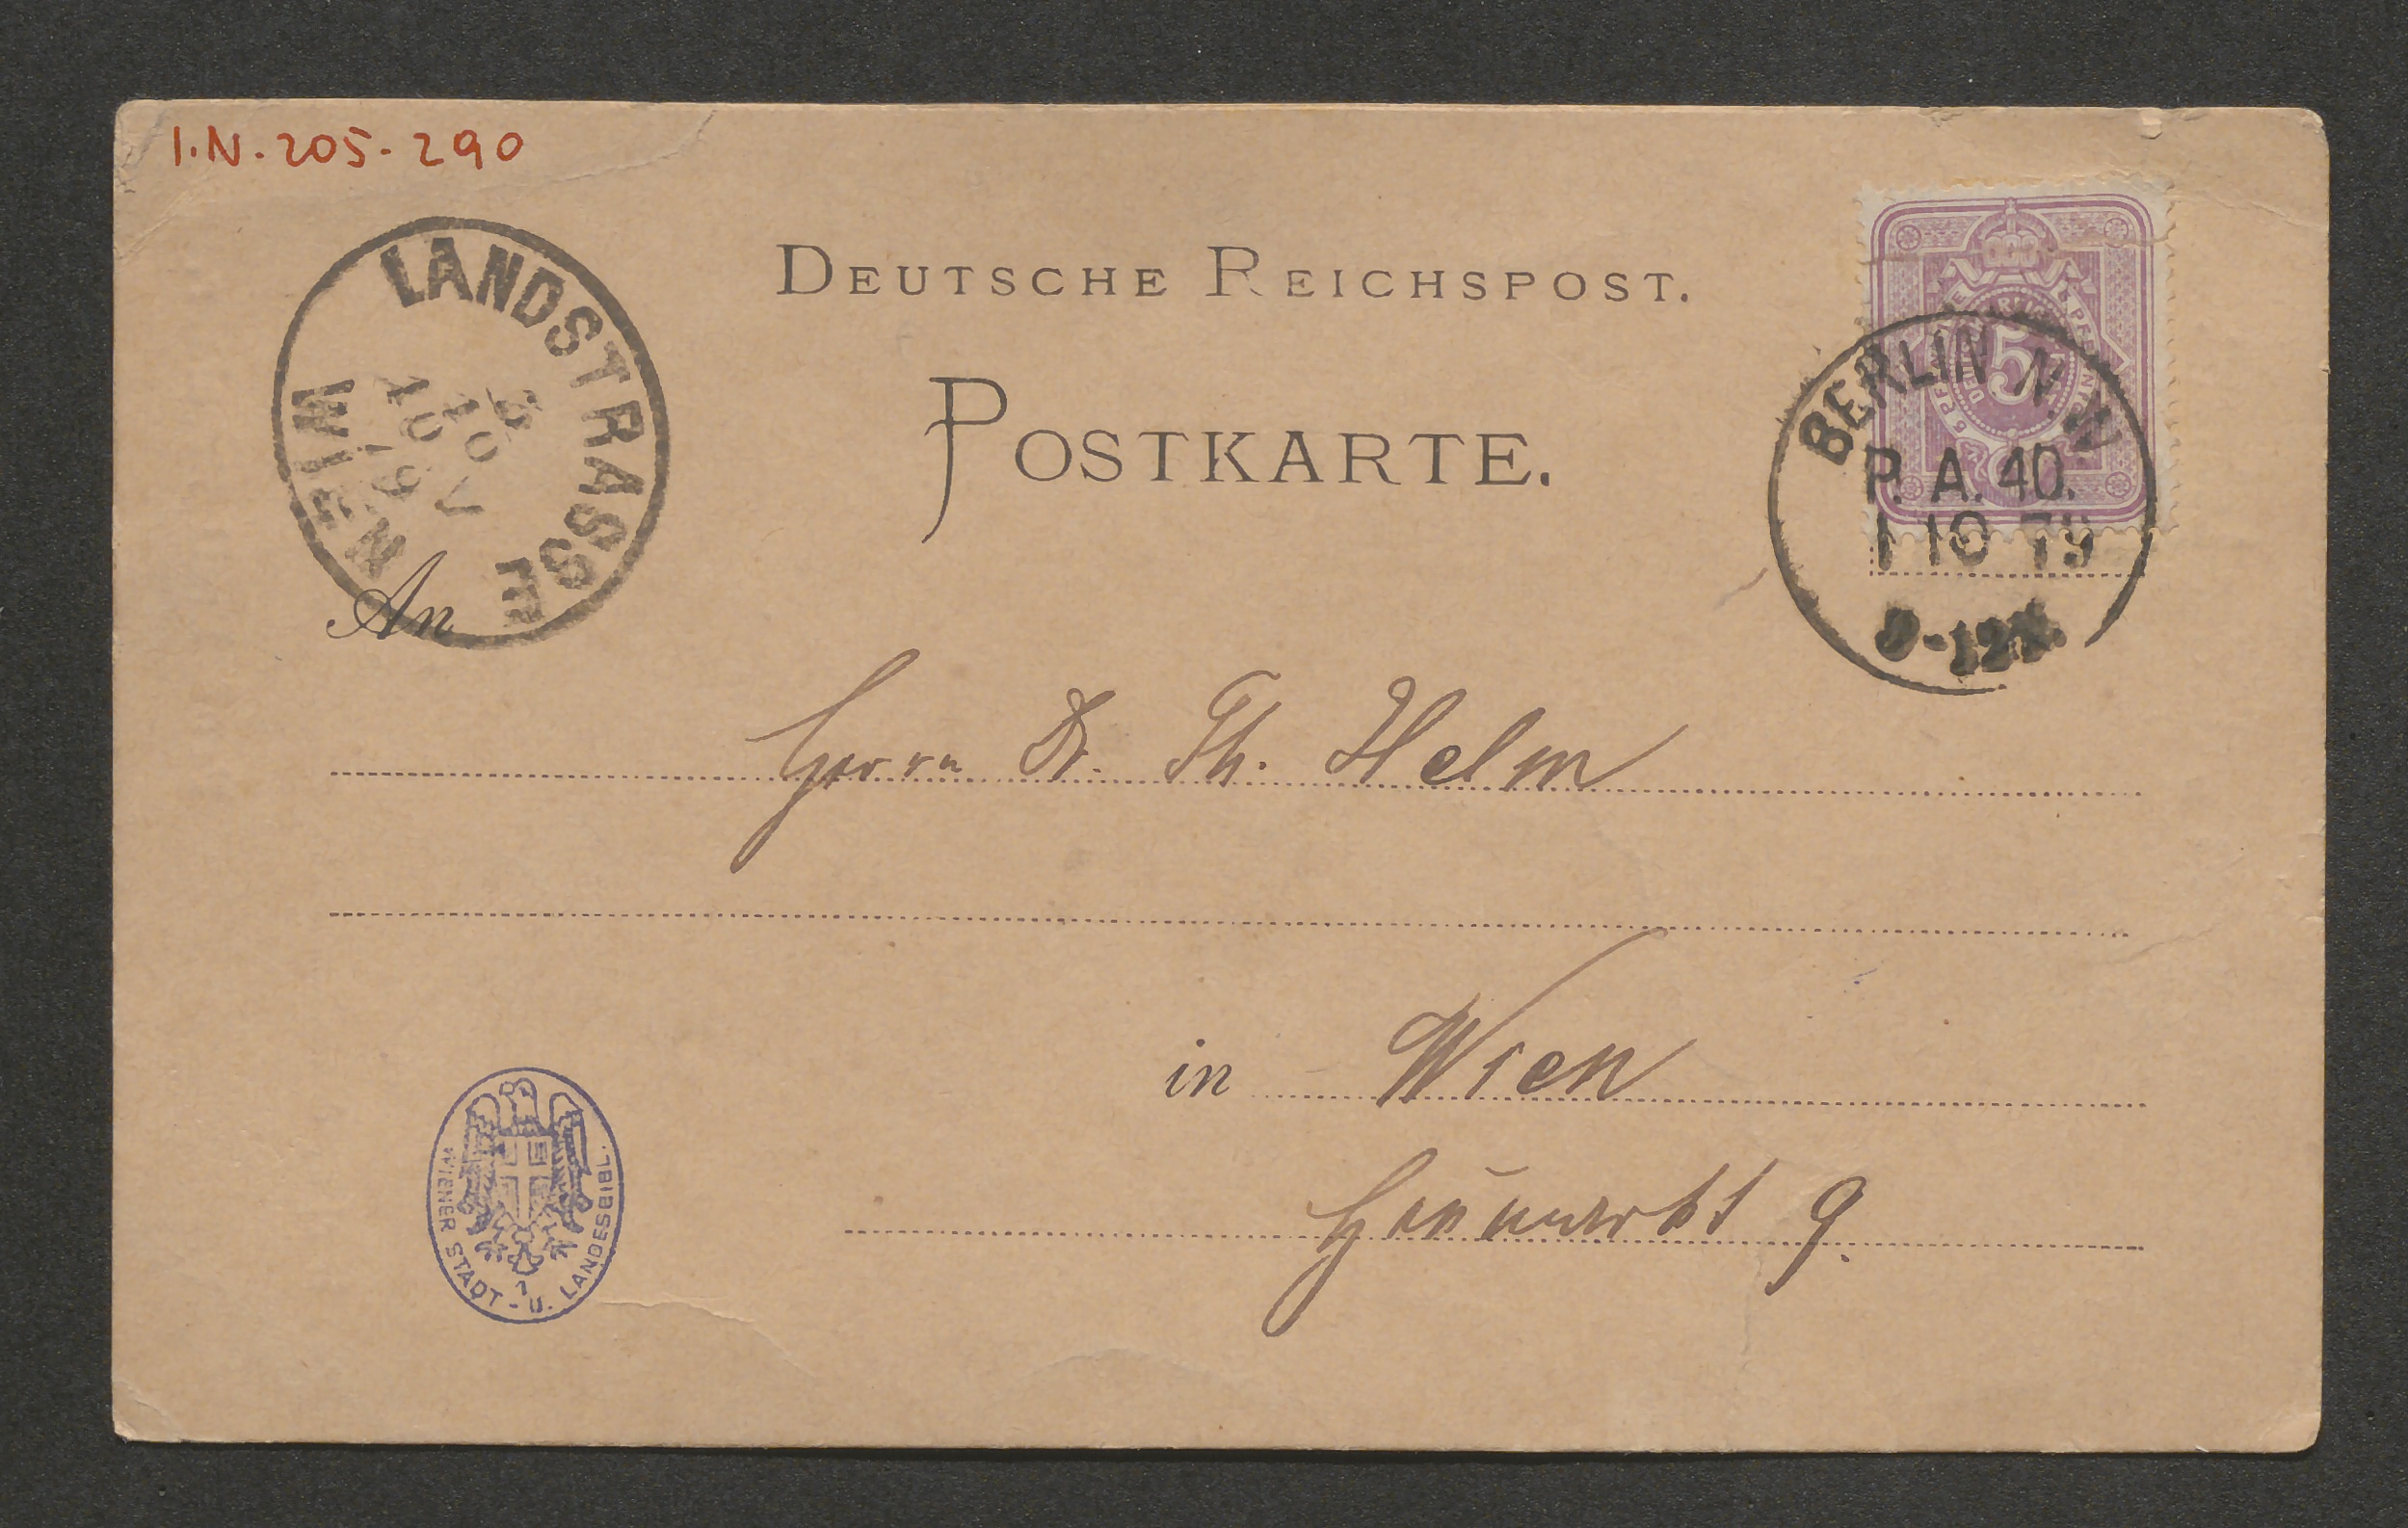 I.N. 205.290
DEUTSCHE REICHSPOST.
POSTKARTE.
LANDSTRASSE
WIEN
10
79
BERLIN N.W
P. A. 40.
1 10 79
9-12N.
5
An
Herrn Dr. Th. Helm
in Wien
Heumarkt 9.
WIENER STADT - U. LANDESBIBL.